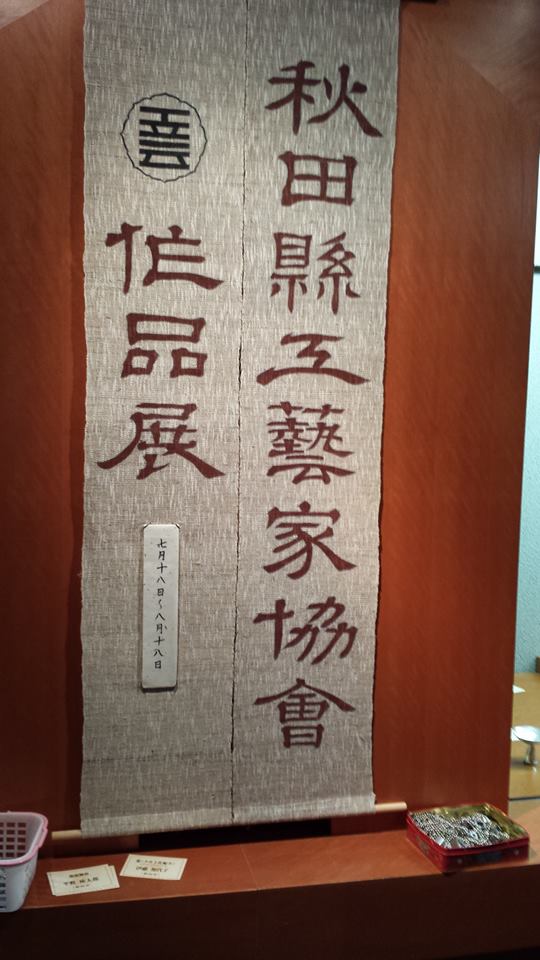 秋田縣工藝家協會
工芸
作品展
七月十八日〜八月十八日